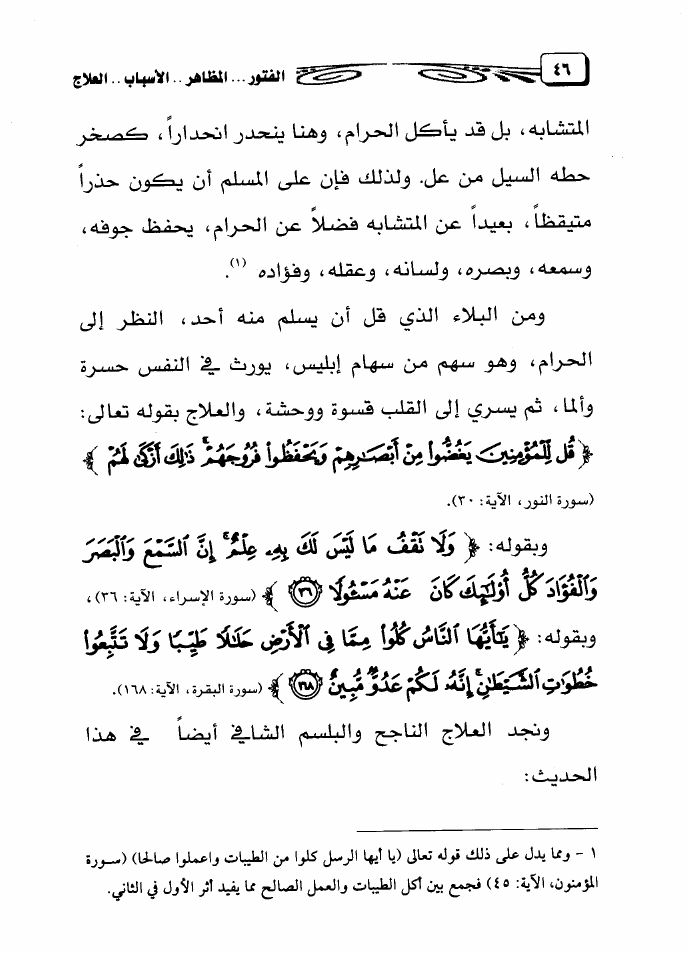 ٤٦
الفتور... المظاهر.. الأسباب.. العلاج
المتشابه، بل قد يأكل الحرام، وهنا ينحدر انحداراً، كصخر
حطه السيل من عل. ولذلك فإن على المسلم أن يكون حذراً
متيقظاً، بعيداً عن المتشابه فضلاً عن الحرام، يحفظ جوفه،
وسمعه، وبصره، ولسانه، وعقله، وفؤاده (١).
ومن البلاء الذي قل أن يسلم منه أحد، النظر إلى
الحرام، وهو سهم من سهام إبليس، يورث في النفس حسرة
وألما، ثم يسري إلى القلب قسوة ووحشة، والعلاج بقوله تعالى:
﴿ قُل لِّلْمُؤْمِنِينَ يَغُضُّوا۟ مِنْ أَبْصَـٰرِهِمْ وَيَحْفَظُوا۟ فُرُوجَهُمْ ۚ ذَٰلِكَ أَزْكَىٰ لَهُمْ ﴾
(سورة النور، الآية: ٣٠).
وبقوله: ﴿ وَلَا تَقْفُ مَا لَيْسَ لَكَ بِهِۦ عِلْمٌ ۚ إِنَّ ٱلسَّمْعَ وَٱلْبَصَرَ
وَٱلْفُؤَادَ كُلُّ أُو۟لَـٰٓئِكَ كَانَ عَنْهُ مَسْـُٔولًا ٣٦ ﴾ (سورة الإسراء، الآية: ٣٦)،
وبقوله: ﴿ يَـٰٓأَيُّهَا ٱلنَّاسُ كُلُوا۟ مِمَّا فِى ٱلْأَرْضِ حَلَـٰلًا طَيِّبًا وَلَا تَتَّبِعُوا۟
خُطُوَٰتِ ٱلشَّيْطَـٰنِ ۚ إِنَّهُۥ لَكُمْ عَدُوٌّ مُّبِينٌ ١٦٨ ﴾ (سورة البقرة، الآية: ١٦٨).
ونجد العلاج الناجح والبلسم الشافي أيضاً في هذا
الحديث:
١ - ومما يدل على ذلك قوله تعالى (يا أيها الرسل كلوا من الطيبات واعملوا صالحا) (سورة
المؤمنون، الآية: ٤٥) فجمع بين أكل الطيبات والعمل الصالح مما يفيد أثر الأول في الثاني.